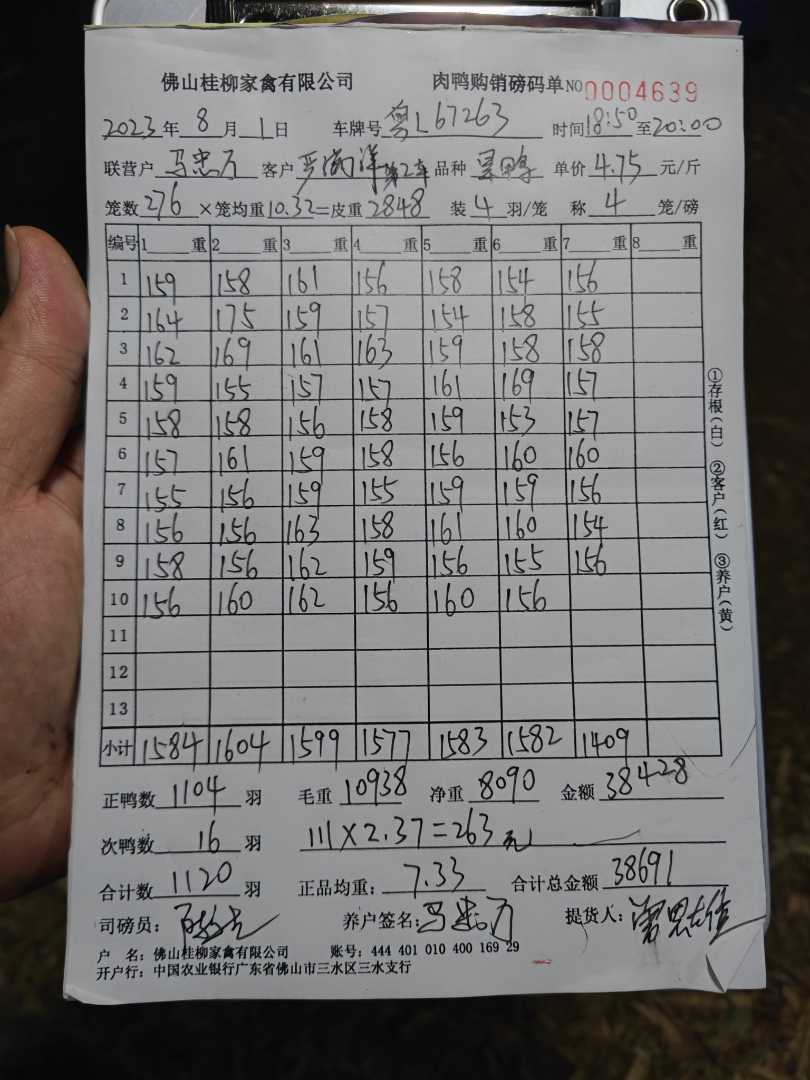 佛山桂柳家禽有限公司 肉鸭购销磅码单 NO 0004639
2023年 8 月 1 日 车牌号 粤L67263 时间 18:50 至 20:00
联营户 马忠万 客户 第2车 品种 黑鸭 单价 4.75 元/斤
笼数 276 × 笼均重 10.32 = 皮重 2848 装 4 羽/笼 称 4 笼/磅
编号 1 重 2 重 3 重 4 重 5 重 6 重 7 重 8 重
1 159 158 161 156 158 154 156
2 164 175 159 157 154 158 155
3 162 169 161 163 159 158 158
4 159 155 157 157 161 169 157
5 158 158 156 158 159 153 157
6 157 161 159 158 156 160 160
7 155 156 159 155 159 159 156
8 156 156 163 158 161 160 154
9 158 156 162 159 156 155 156
10 156 160 162 156 160 156
11
12
13
小计 1584 1604 1599 1577 1583 1582 1409
正鸭数 1104 羽 毛重 10938 净重 8090 金额 38428
次鸭数 16 羽 111×2.37=263元
合计数 1120 羽 正品均重: 7.33 合计总金额 38691
司磅员: 养户签名: 马忠万 提货人:
户 名: 佛山桂柳家禽有限公司 账号: 444 401 010 400 169 29
开户行: 中国农业银行广东省佛山市三水区三水支行
①存根(白) ②客户(红) ③养户(黄)